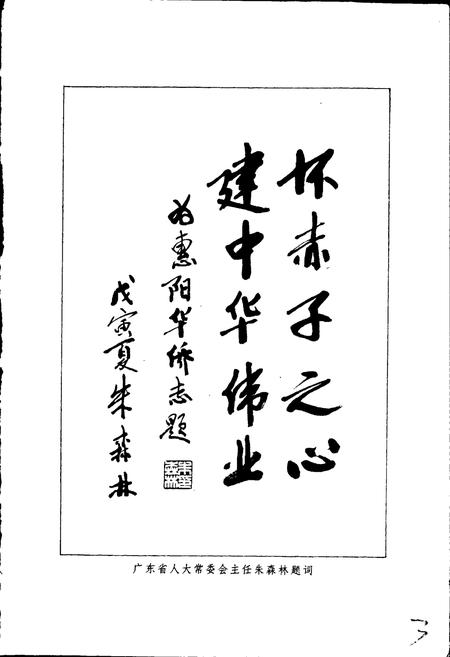 怀赤子之心
建中华伟业
为惠阳华侨志题
戊寅夏朱森林
广东省人大常委会主任朱森林题词